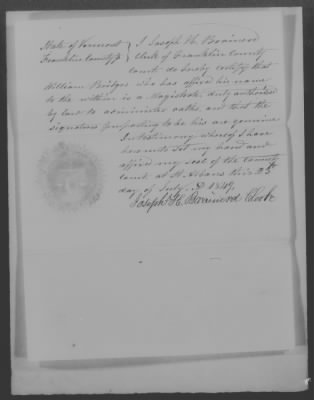 State of Vermont } I Joseph H. Brainerd
Franklin County ss } Clerk of Franklin County
Court do hereby certify that
William Bridges who has affixed his name
to the within is a Magistrate duly authorized
by law to administer oaths, and that the
signature purporting to be his are genuine
In testimony whereof I have
hereunto set my hand and
affixed my seal of the county
court at St Albans this 25th
day of July AD 1849.
Joseph H. Brainerd Clerk